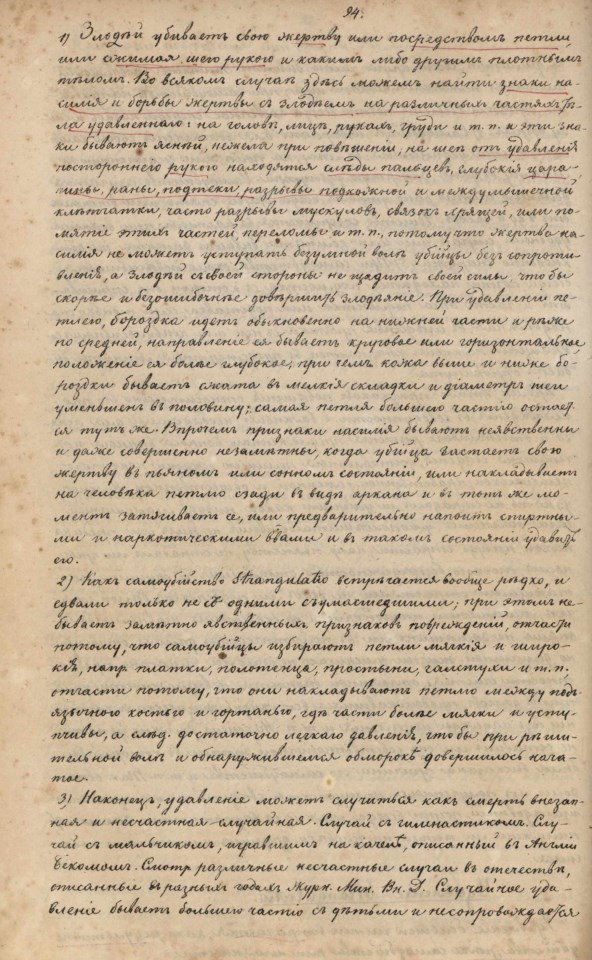 94.
1) Злодѣй убиваетъ свою жертву или посредствомъ петли,
или сжимая шею рукою и какимъ либо другимъ плотнымъ
тѣломъ. Во всякомъ случаѣ здѣсь можемъ найти знаки на-
силія и борьбы жертвы съ злодѣемъ на различныхъ частяхъ тѣ-
ла удавленнаго: на головѣ, лицѣ, рукахъ, груди и т. п. и эти зна-
ки бываютъ яснѣй, нежели при повѣшеніи, на шеѣ отъ удавленія
постороннего рукою находятся слѣды пальцевъ, глубокія цара-
пины, раны, подтеки, разрывы подкожной и междумышечной
клѣтчатки, часто разрывы мускуловъ, связокъ хрящей, или по-
мятіе этихъ частей, переломы и т. п., потому что жертва на-
силія не можетъ уступать безумной волѣ убійцы безъ сопроти-
вленія, а злодѣй съ своей стороны не щадитъ своей силы, что бы
скорѣе и безошибочнѣе довершить злодѣяніе. При удавленіи пе-
тлею, бороздка идетъ обыкновенно на нижней части и рѣже
по средней, направленіе ея бываетъ круговое или горизонтальное
положеніе ея болѣе глубокое; при чемъ кожа выше и ниже бо-
роздки бываетъ сжата въ мелкія складки и діаметръ шеи
уменьшенъ въ половину; самая петля большею частію остает-
ся тутъ же. Впрочемъ признаки насилія бываютъ неявственны
и даже совершенно незамѣтны, когда убійца застаетъ свою
жертву въ пьяномъ или сонномъ состояніи, или накладываетъ
на человѣка петлю сзади въ видѣ аркана и въ тотъ же мо-
ментъ затягиваетъ ее, или предварительно напоитъ спиртны-
ми и наркотическими вѣами и въ такомъ состояніи удавитъ
его.
2) Какъ самоубійство Strangulatio встрѣчается вообще рѣдко, и
едвали только не съ одними съумасшедшими; при этомъ не-
бываетъ замѣтно явственныхъ признаковъ поврежденій, отчасти
потому, что самоубійцы избираютъ петли мягкія и широ-
кія, напр. платки, полотенца, простыни, галстухи и т. п.,
отчасти потому, что они накладываютъ петлю между подъ-
язычного костью и гортанью, гдѣ части болѣе мягки и усту-
пчивы, а слѣд. достаточно легкаго давленія, что бы при рѣши-
тельной волѣ и обнаружившемся обморокѣ довершилось нача-
тое.
3) Наконецъ, удавленіе можетъ случиться какъ смерть внезап-
ная и несчастная-случайная. Случай съ гимнастикомъ. Слу-
чай съ мальчикомъ, игравшимъ на качелѣ, описанный въ Англіи
Смотр. различные несчастные случаи въ отечествѣ,
описанные въ разныхъ годахъ Журн. Мин. Вн. Д. Случайное уда-
вленіе бываетъ большею частію съ дѣтьми и несопровождается